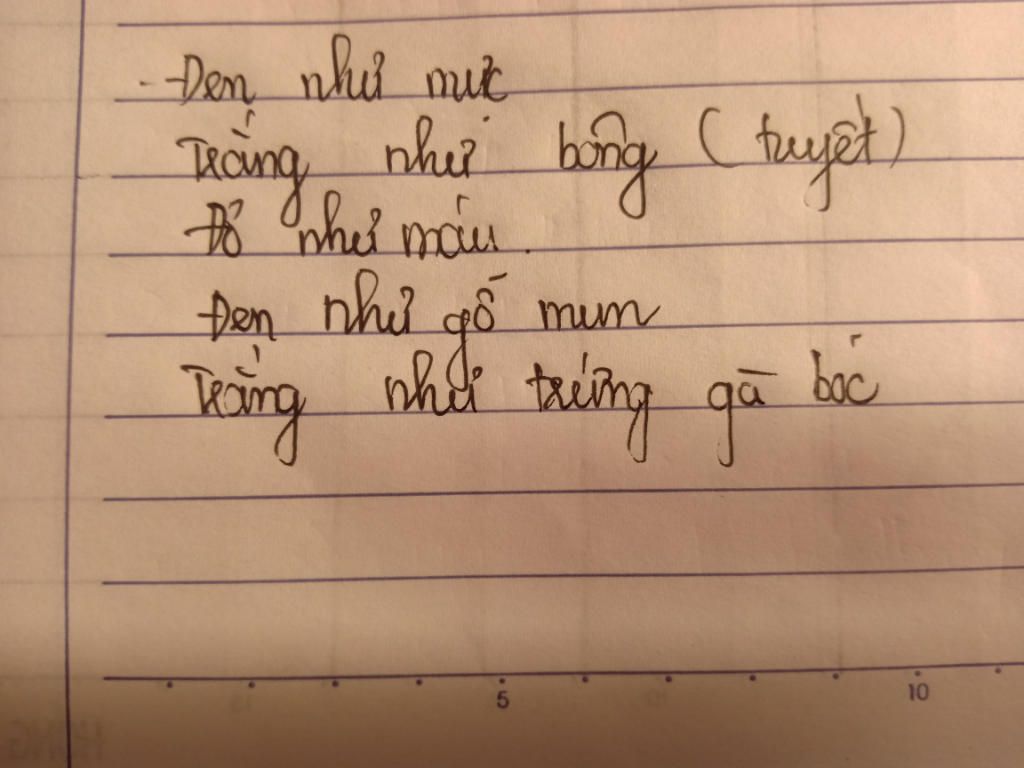 - Đen như mực
Trắng như bông (tuyết)
Đỏ như máu.
Đen như gỗ mun
Trắng như trứng gà bóc
5 10